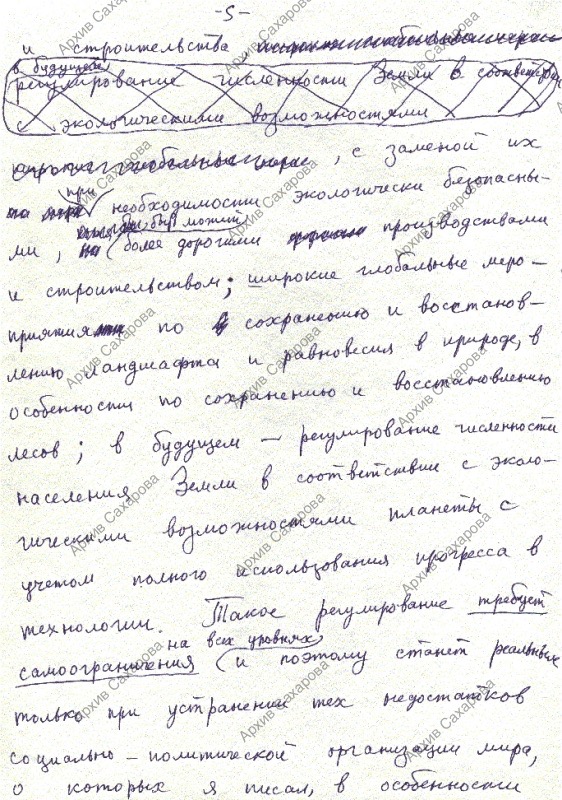 -5-
и строительства
в будущем
регулирование численности Земли в соответствии
с экологическими возможностями
, с заменой их
при
необходимости экологически безопасны-
быть может
ми, более дорогими производствами
и строительством; широкие глобальные меро-
приятия по сохранению и восстанов-
лению ландшафта и равновесия в природе, в
особенности по сохранению и восстановлению
лесов; в будущем — регулирование численности
населения Земли в соответствии с эколо-
гическими возможностями планеты с
учетом полного использования прогресса в
технологии. Такое регулирование требует
на всех уровнях
самоограничения и поэтому станет реальным
только при устранении тех недостатков
социально-политической организации мира,
о которых я писал, в особенности
Архив Сахарова